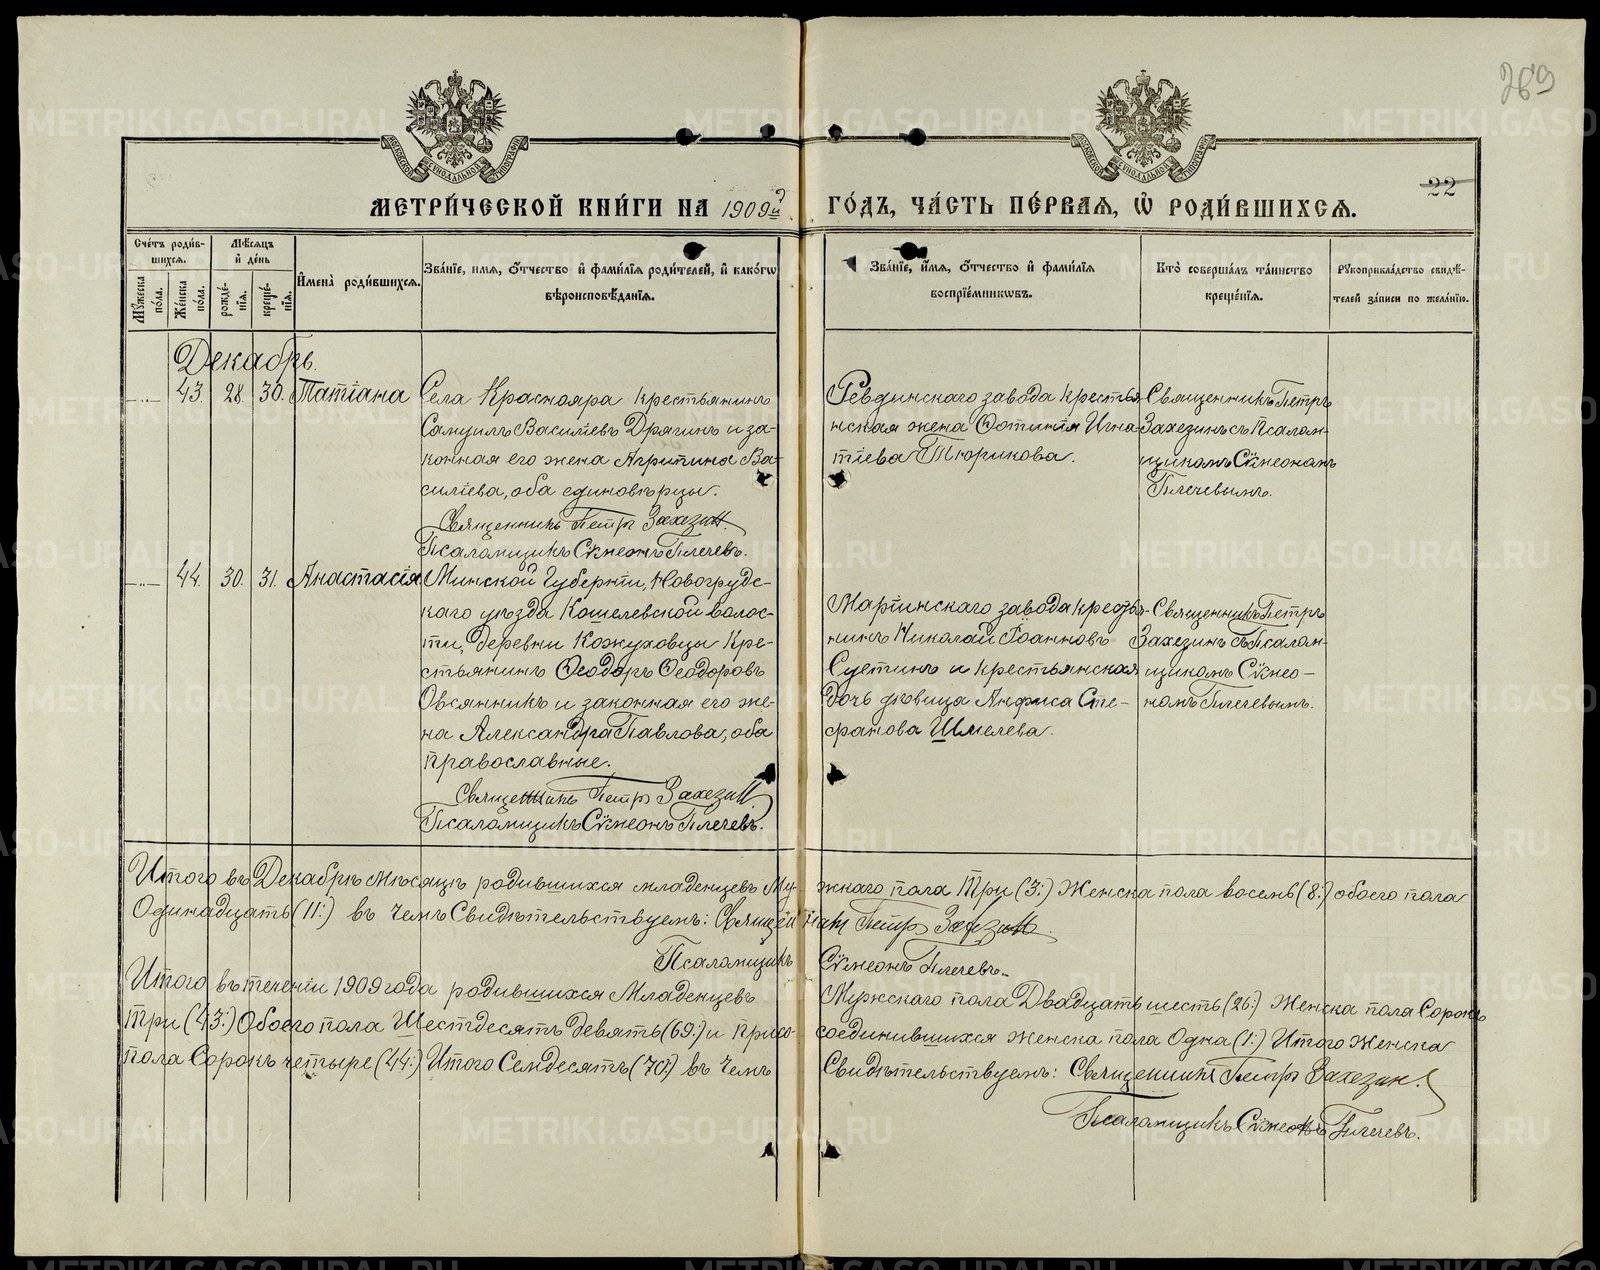 269
22
МЕТРИ́ЧЕСКОЙ КНИ́ГИ НА 1909й ГО́ДЪ, ЧА́СТЬ ПЕ́РВАЯ, Ѡ҆ РОДИ́ВШИХСЯ.
Сче́тъ роди́вшихся.
Му́жеска по́ла.
Же́нска по́ла.
Мѣ́сяцъ и҆ де́нь
рожде́нїя.
креще́нїя.
И҆мена̀ роди́вшихся.
Зва́нїе, и҆мя, ѻ҆́тчество и҆ фами́лїя роди́телей, и҆ како́гѡ
вѣроисповѣ́данїя.
Зва́нїе, и҆́мя, ѻ҆́тчество и҆ фами́лїя
воспрїе́мникѡвъ.
Кто̀ соверша́лъ та́инство
креще́нїя.
Рꙋкоприкла́дство свидѣ́-
телей за́писи по жела́нїю.
Декабрь.
43. 28. 30. Татіана
Села Краснояра крестьянинъ
Самуилъ Василіевъ Дрягинъ и за-
конная его жена Агрипина Ва-
силіева, оба единовѣрцы.
Священникъ Петръ Захезин.
Псаломщикъ Сѵмеонъ Плечевъ.
Ревдинскаго завода крестья-
нская жена Фотинія Игна-
тіева Тюрикова.
Священникъ Петръ
Захезинъ съ Псалом-
щикомъ Сѵмеономъ
Плечевымъ.
44. 30. 31. Анастасія
Минской Губерніи, Новогрудс-
каго уѣзда Кошелевской волос-
ти, Деревни Кожуховцы Кре-
стьянинъ Ѳеодоръ Ѳеодоровъ
Овсянникъ и законная его же-
на Александра Павлова, оба
православные.
Священникъ Петръ Захезин
Псаломщикъ Сѵмеонъ Плечевъ.
Маріинскаго завода крестья-
нинъ Николай Іоанновъ
Суетинъ и крестьянская
дочь дѣвица Анфиса Сте-
фанова Шмелева.
Священникъ Петръ
Захезинъ съ Псалом-
щикомъ Сѵмео-
номъ Плечевымъ.
Итого въ Декабрѣ мѣсяцѣ родившихся младенцевъ Му- жскаго пола Три (3:) Женска пола восемь (8:) обоего пола
Одинадцать (11:) въ чемъ Свидѣтельствуемъ: Священникъ Петръ Захезинъ.
Псаломщикъ Сѵмеонъ Плечевъ.
Итого въ теченіи 1909 года родившихся Младенцевъ Мужскаго пола Двадцать шесть (26:) Женска пола Сорокъ
Три (43:) Обоего пола Шестдесятъ девять (69:) и Присо- соединившихся женска пола Одна (1:) Итого Женска
пола Сорокъ четыре (44:) Итого Семдесятъ (70:) въ чемъ Свидѣтельствуемъ: Священникъ Петръ Захезин.
Псаломщикъ Сѵмеонъ Плечевъ.
METRIKI.GASO-URAL.RU